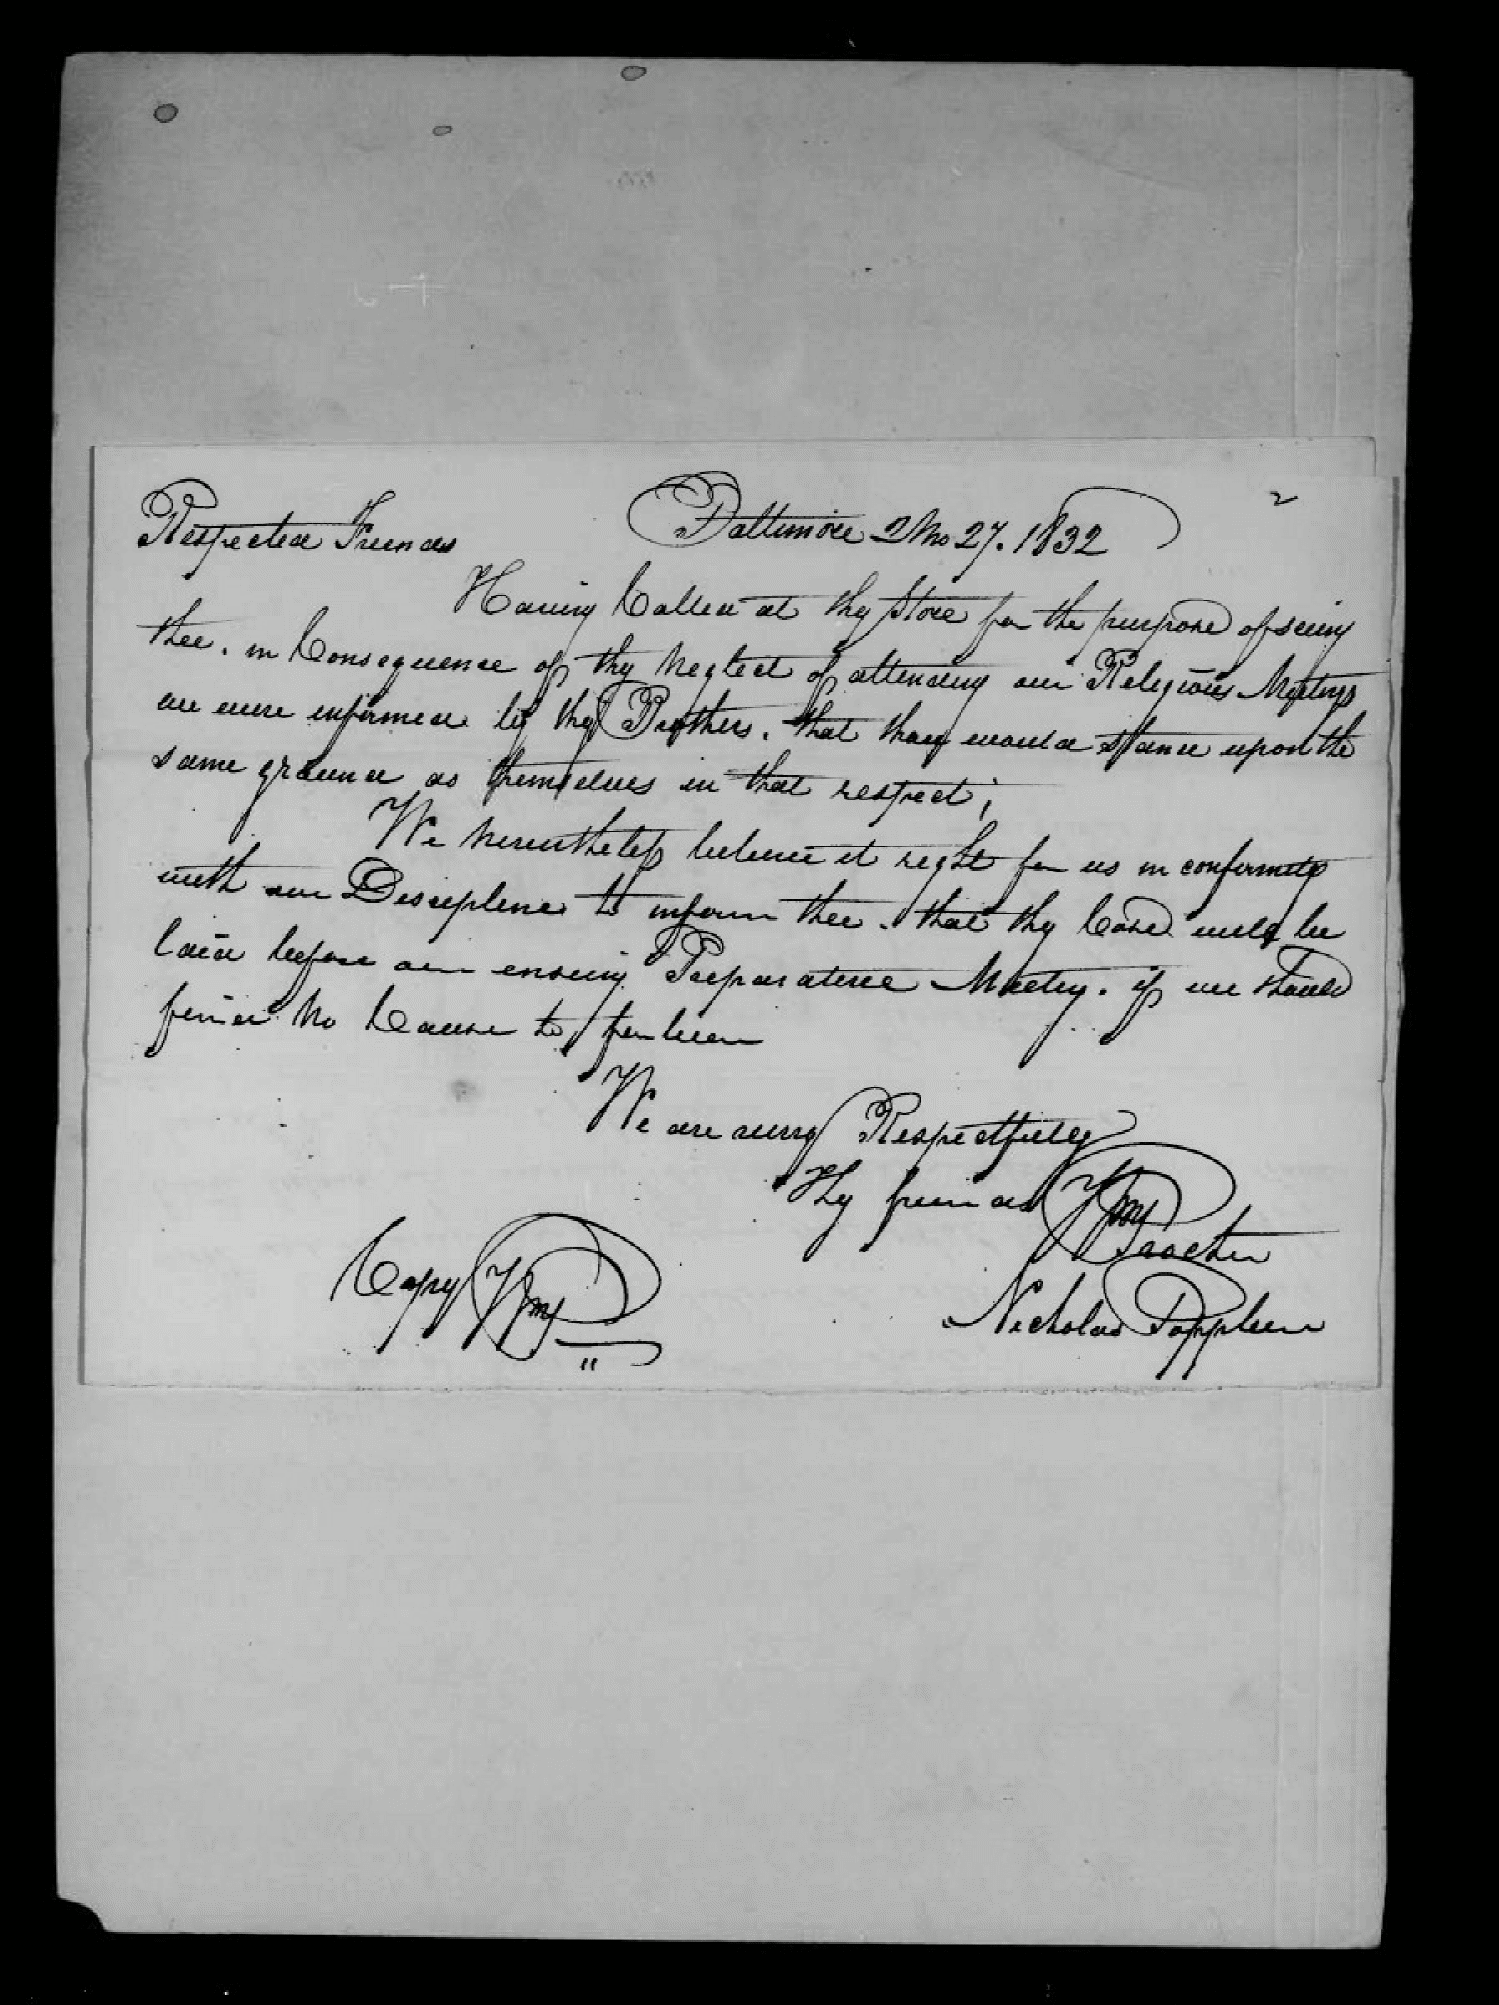 2
Baltimore 2 Mo 27. 1832
Respected Friend
Having Called at thy Store for the purpose of seeing
thee. in Consequence of thy Neglect of attending our Religious Meetings
we were informed by thy Brothers. that thou would stand upon the
same ground as themselves in that respect;
We Nevertheless believe it right for us in conformity
with our Discipline to inform thee. that thy Case will be
laid before our ensuing Preparative Meeting. if we should
find No Cause to forbear
We are very Respectfully
Thy friends Wm
Procter
Copy Wm P
Nicholas Popplein